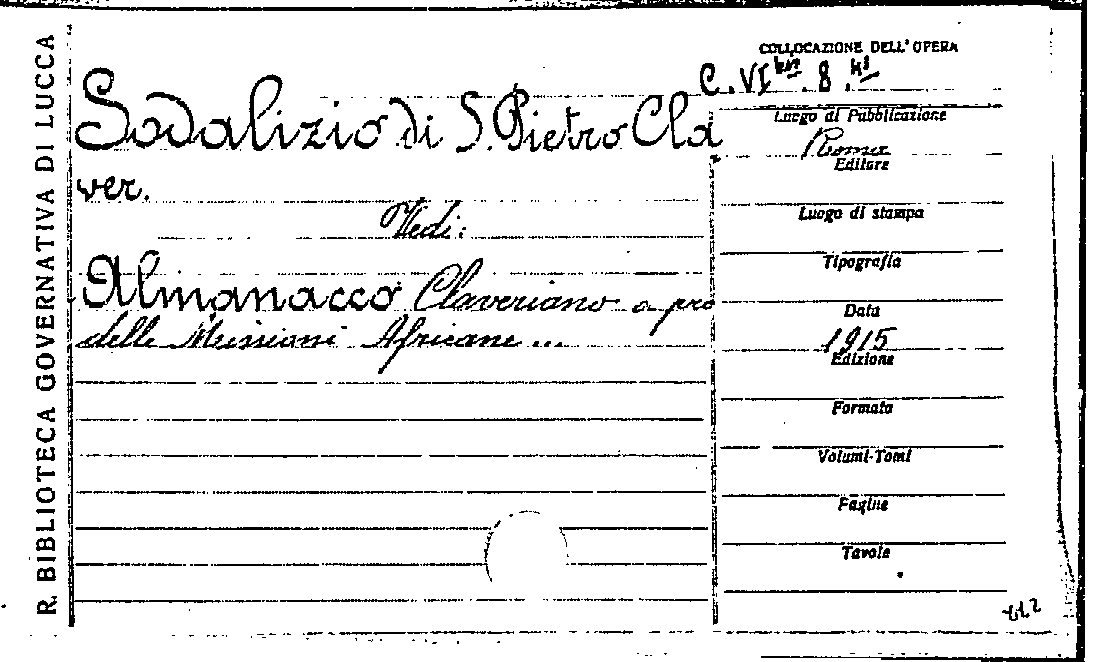 R. BIBLIOTECA GOVERNATIVA DI LUCCA
Sodalizio di S. Pietro Cla
ver.
Vedi:
Almanacco Claveriano a pro
delle Missioni Africane ...
COLLOCAZIONE DELL'OPERA
C. VI . 8.
Luogo di Pubblicazione
Roma
Editore
Luogo di stampa
Tipografia
Data
1915
Edizione
Formato
Volumi-Tomi
Pagine
Tavole